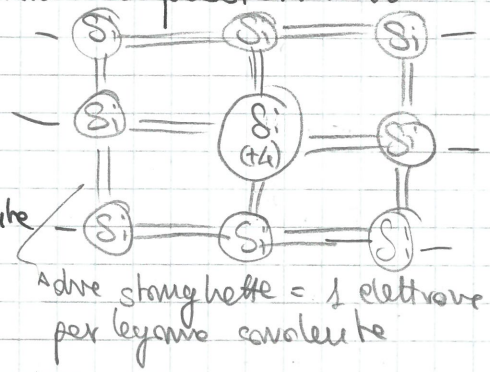 Si Si Si
Si Si (+4) Si
Si Si Si
due stanghette = 1 elettrone
per legame covalente